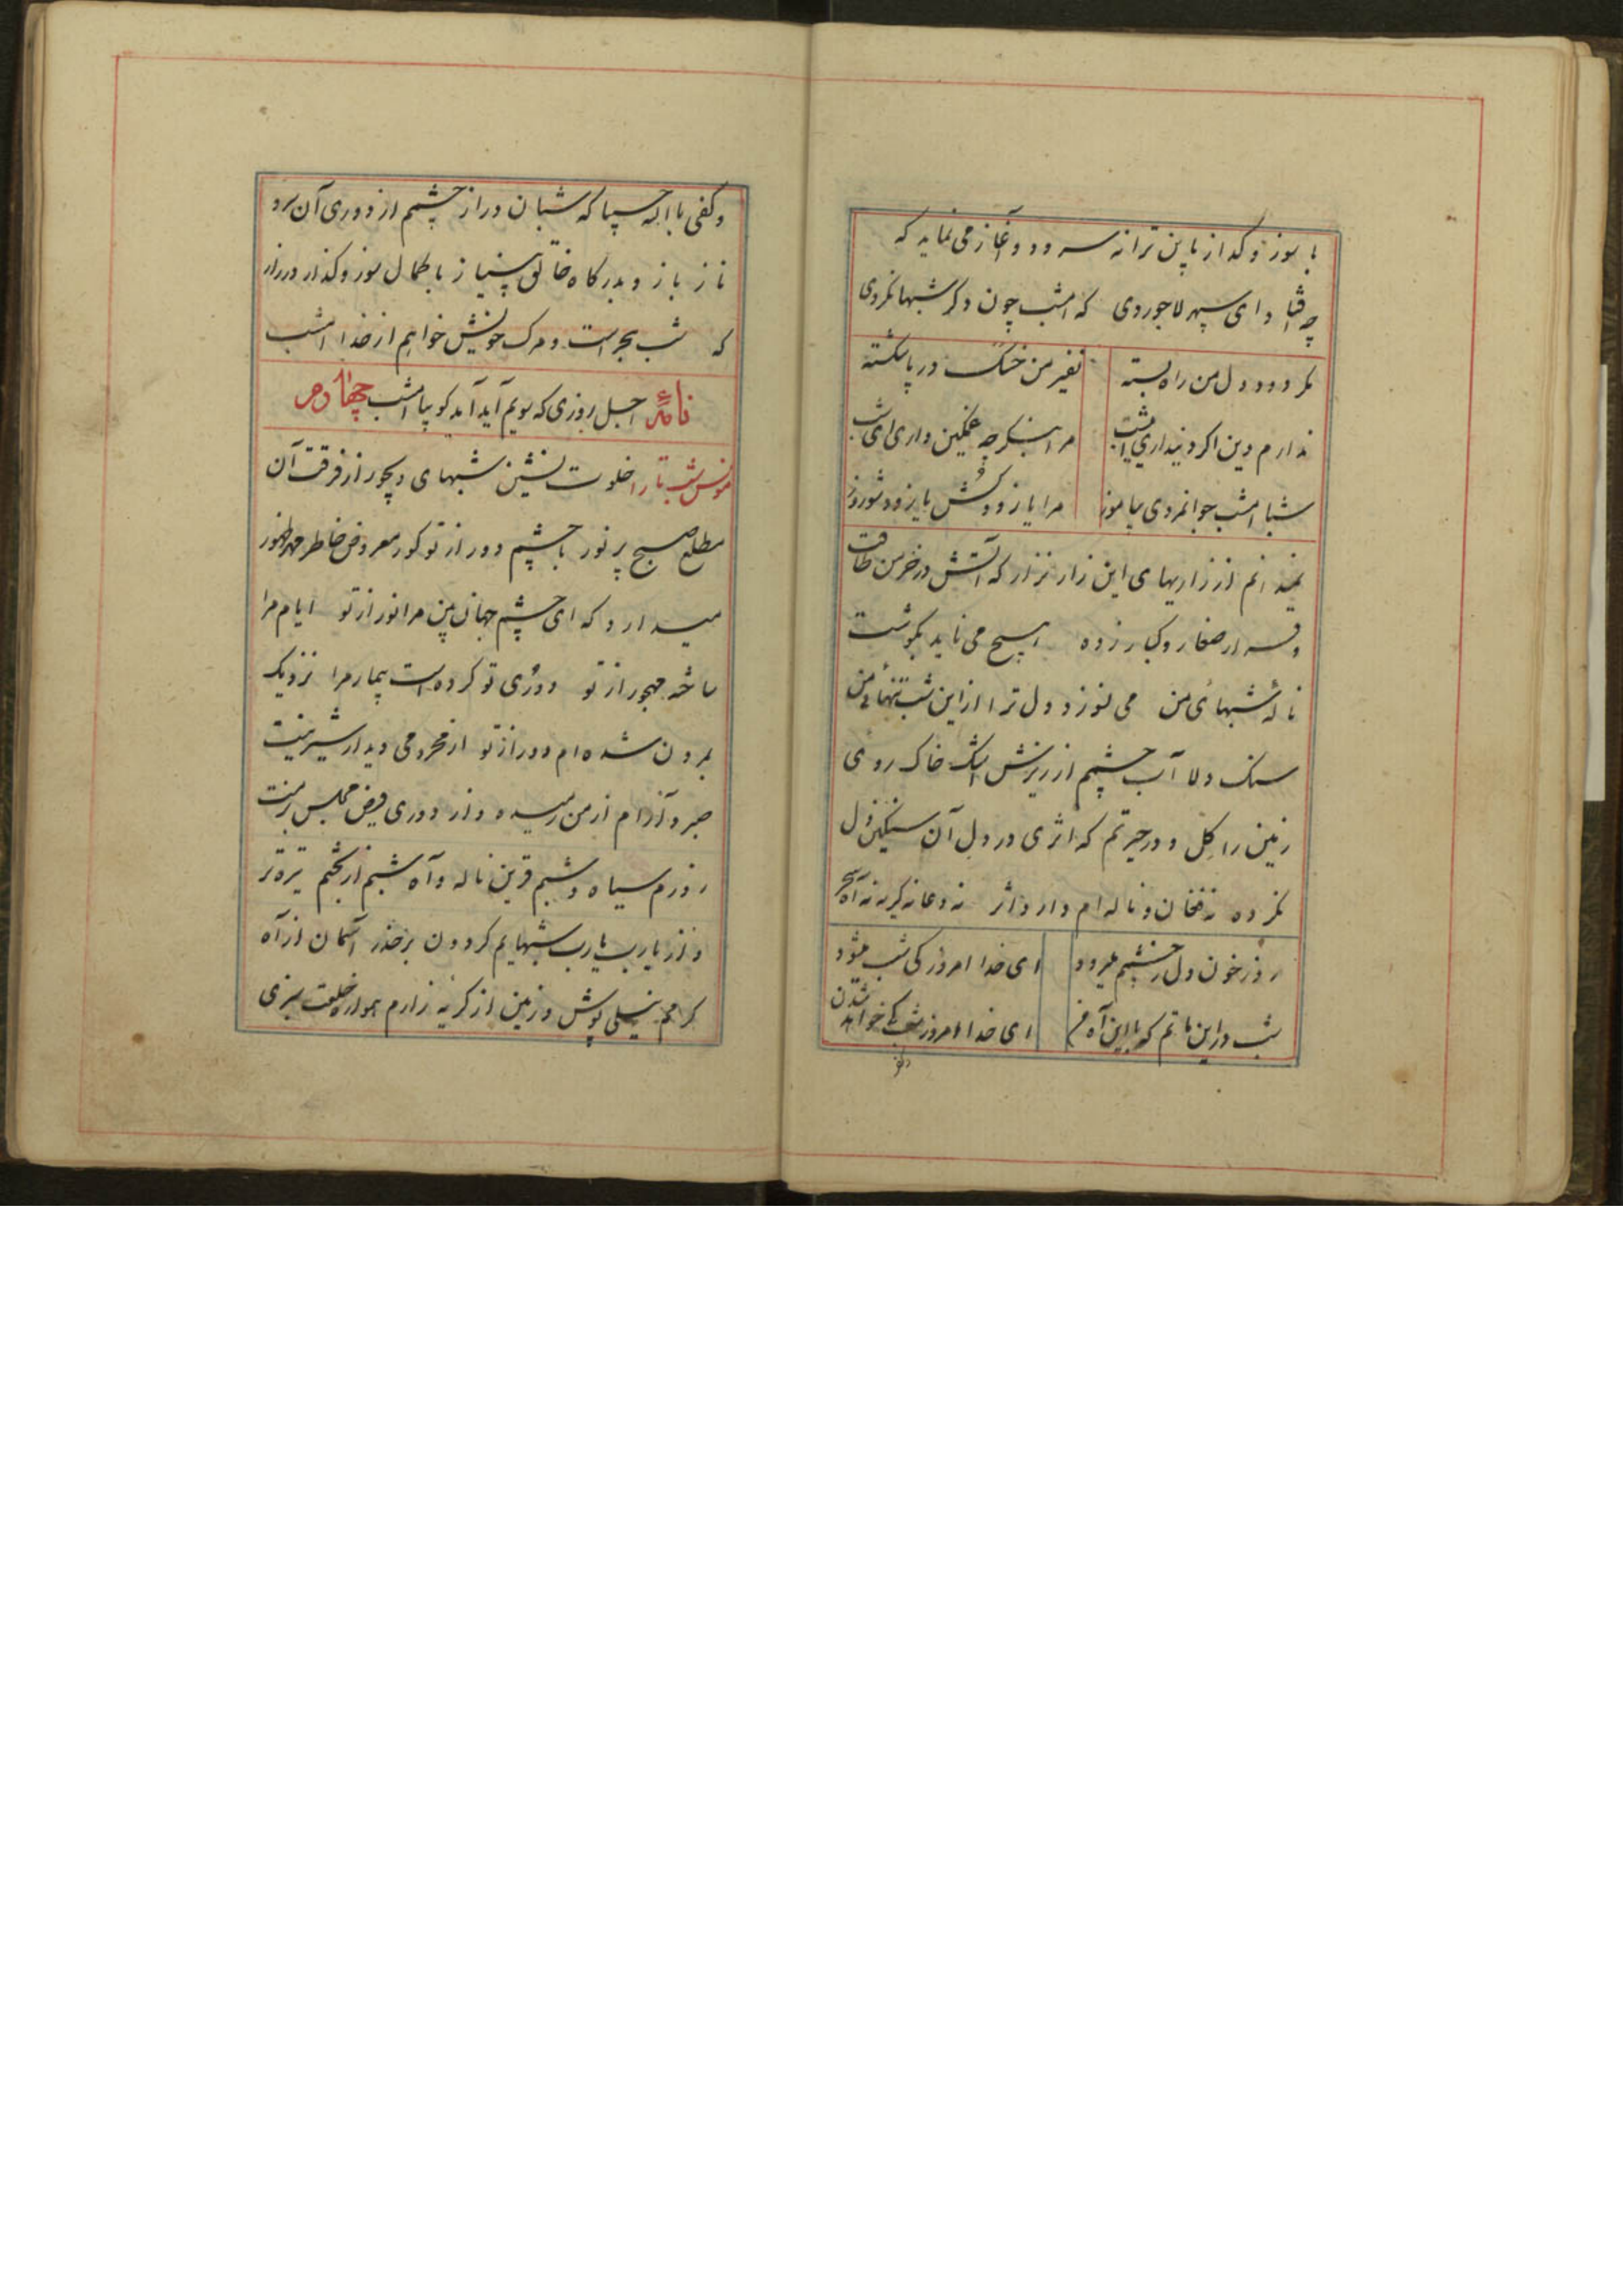 با سوز و گداز باین ترانه سرود و آغاز می نماید که
چه افتاد ای سپهر لاجوردی که امشب چون دگر شبها نکردی
مگر دود دل من راه بسته نفیر من خسک در پا شکسته
ندارم دین اگر دین داری امشب مرا بنگر چه غمگین داری ای شب
شبا امشب جوانمردی بیاموز مرا یا زود کش یا زود شو روز
نمیدانم از زاریهای این زار نزار که آتش در خرمن طاقت
و قرار صغار و کبار زده هیچ می ناید بگوشت
ناله شبهای من می نوزد دل ترا از این شب تنهائی من
سنگ دلا آب چشمم از ریزش اشک خاک روی
زمین را گل و در حیرتم که اثری در دل آن سنگین دل
نکرده نه فغان و ناله ام دارد اثر نه دعا نه گریه نه آه سحر
روز خون دل ز چشمم میرود ای خدا امروز کی شب میشود
شب در این ماتم که با این آه من ای خدا امروز شب کی خواهد شدن
و کفی بالله حسیبا که شبان دراز چشمم از دوری آن سرو
ناز باز و بدرگاه خالق بی نیاز با کمال سوز و گداز در راز
که شب هجر است و مرگ خویش خواهم از خدا امشب
نامهٔ اجل روزی که سویم آید آید گو بیا امشب چهاردهم
مونس شب تار را خلوت نشین شبهای دیجور از فرقت آن
مطلع صبح پر نور با چشم دور از تو کور معروض خاطر مهر ظهور
میدارد که ای چشم جهان بین مرا نور از تو ایام مرا
ساخته مهجور از تو دوری تو کرده است بیمار مرا نزدیک
بمردن شده ام دور از تو از محرومی دیدار شیرینت
صبر و آرام از من رمیده و از دوری فیض مجلس
روزم سیاه و شبم قرین ناله و آه شبم از تیره تر
و از یارب یارب شبهایم گردون بر حذر آسمان از آه
گرمم نیلی پوش و زمین از گریه زارم همواره خلعت سبزی